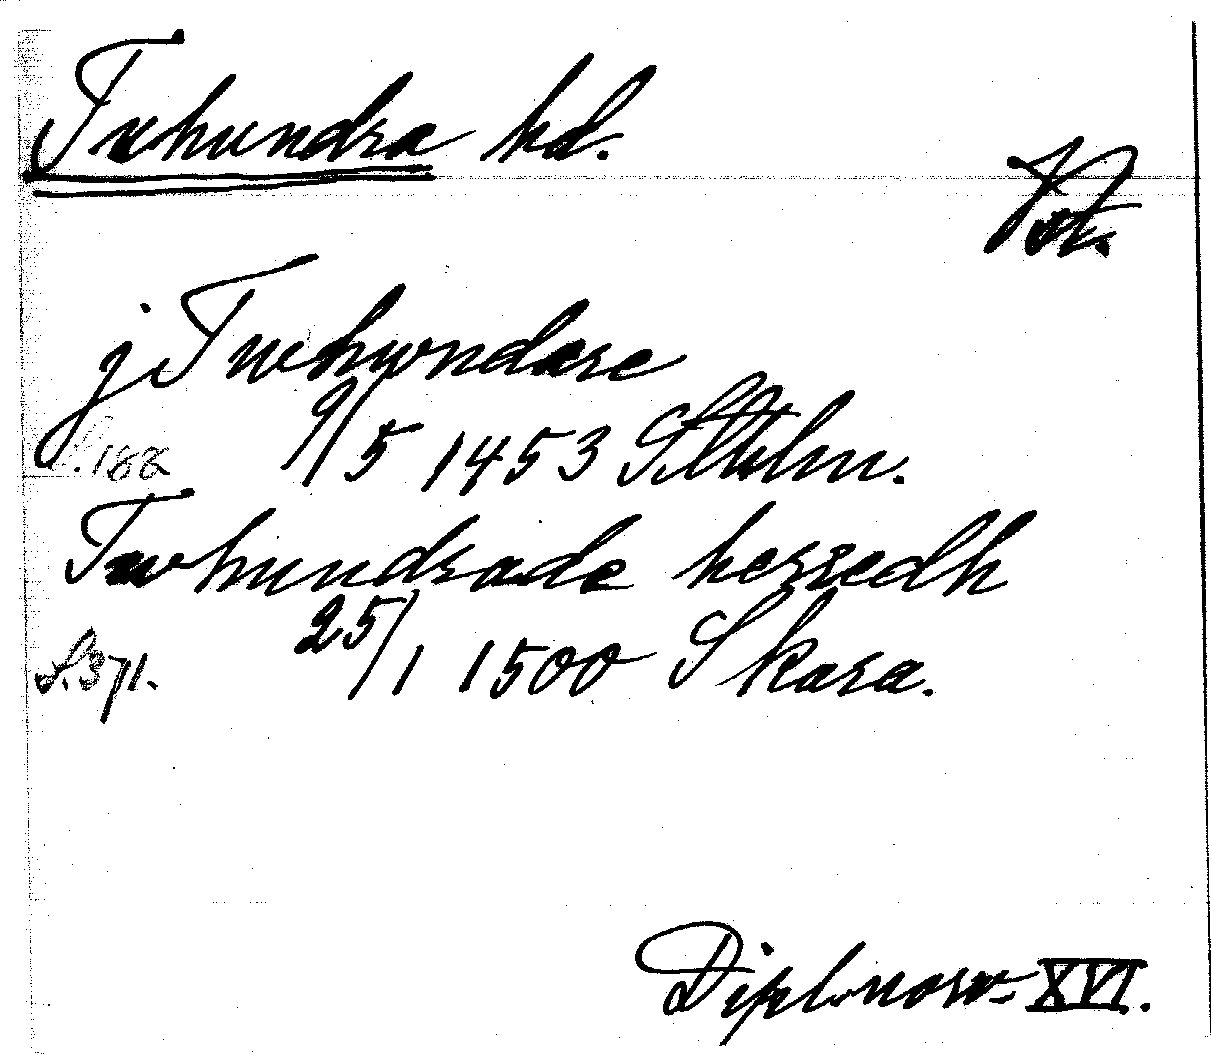 Tuhundra hd.
Vst.
j Twhwndare
S. 188 9/5 1453 Sthlm.
Twhundrade herredh
S. 371. 25/1 1500 Skara.
Diplomor XVI.